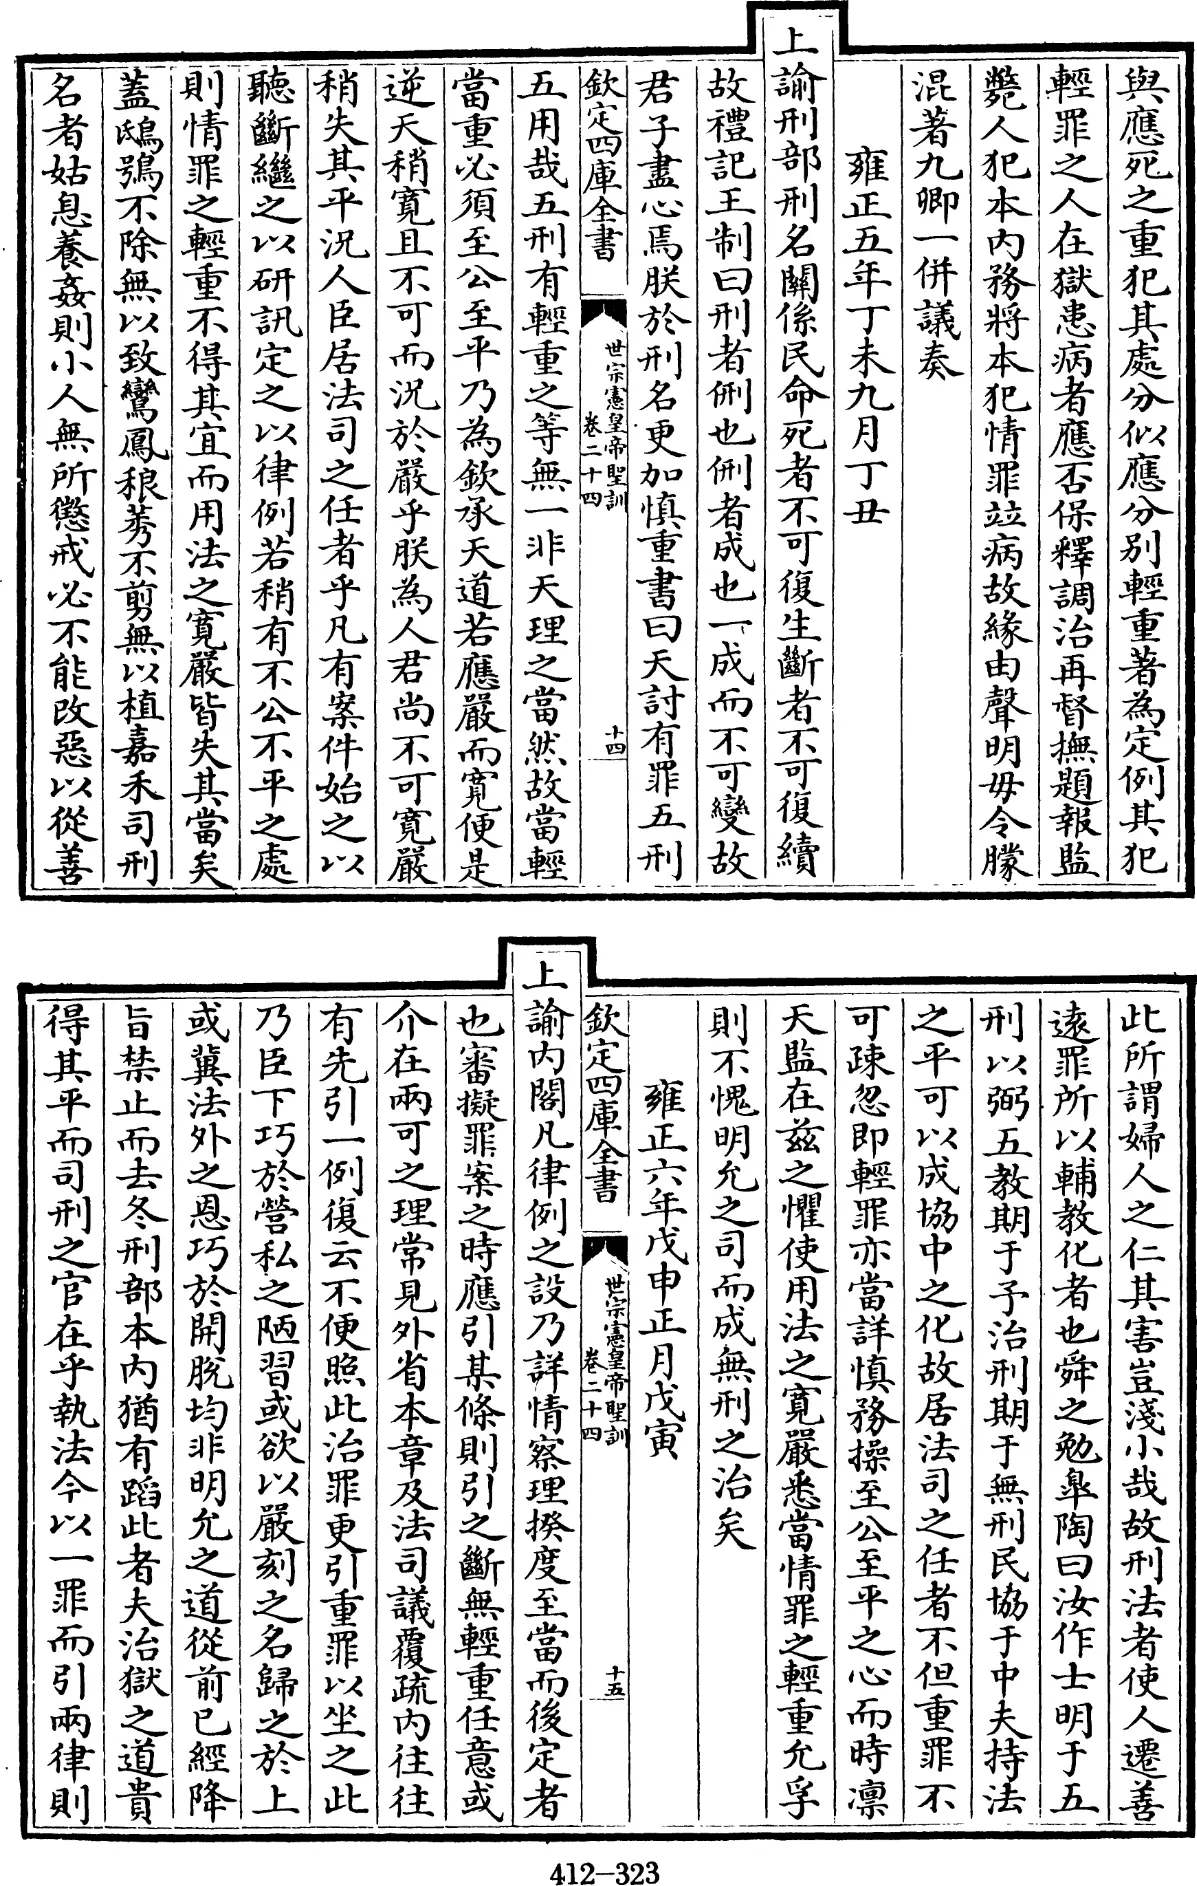 與應死之重犯其處分似應分別輕重著為定例其犯
輕罪之人在獄患病者應否保釋調治再督撫題報監
斃人犯本內務將本犯情罪竝病故緣由聲明毋令朦
混著九卿一併議奏
雍正五年丁未九月丁丑
上諭刑部刑名關係民命死者不可復生斷者不可復續
故禮記王制曰刑者侀也侀者成也一成而不可變故
君子盡心焉朕於刑名更加慎重書曰天討有罪五刑
欽定四庫全書
世宗憲皇帝聖訓
卷二十四
十四
五用哉五刑有輕重之等無一非天理之當然故當輕
當重必須至公至平乃為欽承天道若應嚴而寬便是
逆天稍寬且不可而況於嚴乎朕為人君尚不可寬嚴
稍失其平況人臣居法司之任者乎凡有案件始之以
聽斷繼之以研訊定之以律例若稍有不公不平之處
則情罪之輕重不得其宜而用法之寬嚴皆失其當矣
蓋鴟鴞不除無以致鸞鳳稂莠不剪無以植嘉禾司刑
名者姑息養姦則小人無所懲戒必不能改惡以從善
此所謂婦人之仁其害豈淺小哉故刑法者使人遷善
遠罪所以輔教化者也舜之勉臯陶曰汝作士明于五
刑以弼五教期于予治刑期于無刑民協于中夫持法
之平可以成協中之化故居法司之任者不但重罪不
可疎忽即輕罪亦當詳慎務操至公至平之心而時凜
天監在茲之懼使用法之寬嚴悉當情罪之輕重允孚
則不愧明允之司而成無刑之治矣
雍正六年戊申正月戊寅
欽定四庫全書
世宗憲皇帝聖訓
卷二十四
十五
上諭內閣凡律例之設乃詳情察理揆度至當而後定者
也審擬罪案之時應引某條則引之斷無輕重任意或
介在兩可之理常見外省本章及法司議覆疏內往往
有先引一例復云不便照此治罪更引重罪以坐之此
乃臣下巧於營私之陋習或欲以嚴刻之名歸之於上
或冀法外之恩巧於開脫均非明允之道從前已經降
旨禁止而去冬刑部本內猶有蹈此者夫治獄之道貴
得其平而司刑之官在乎執法今以一罪而引兩律則
412-323